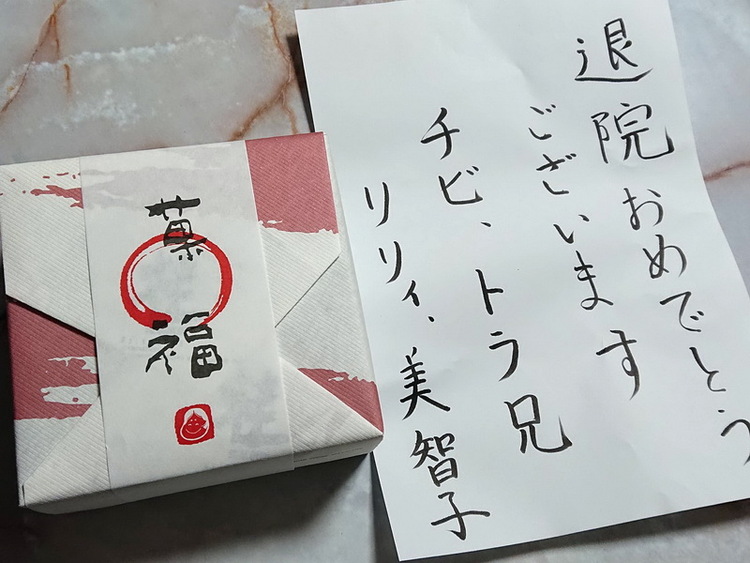 菓
福
退院おめでとう
ございます
チビ、トラ兄
リリィ、美智子